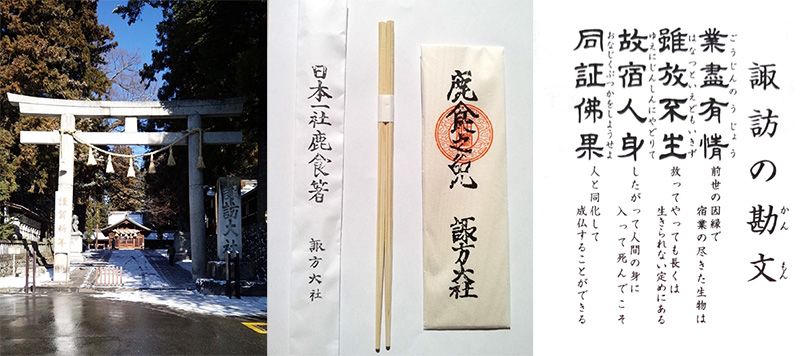 謹賀新年
諏訪大社
日本一社鹿食箸
諏方大社
鹿食之免
諏方大社
諏訪の勘文
かんもん
業盡有情
ごうじんのうじょう
雖放不生
はなつといえどもいきず
故宿人身
ゆえにじんしんにやどりて
同証佛果
おなじくぶつかをしょうせよ
前世の因縁で
宿業の尽きた生物は
放ってやっても長くは
生きられない定めにある
したがって人間の身に
入って死んでこそ
人と同化して
成仏することができる